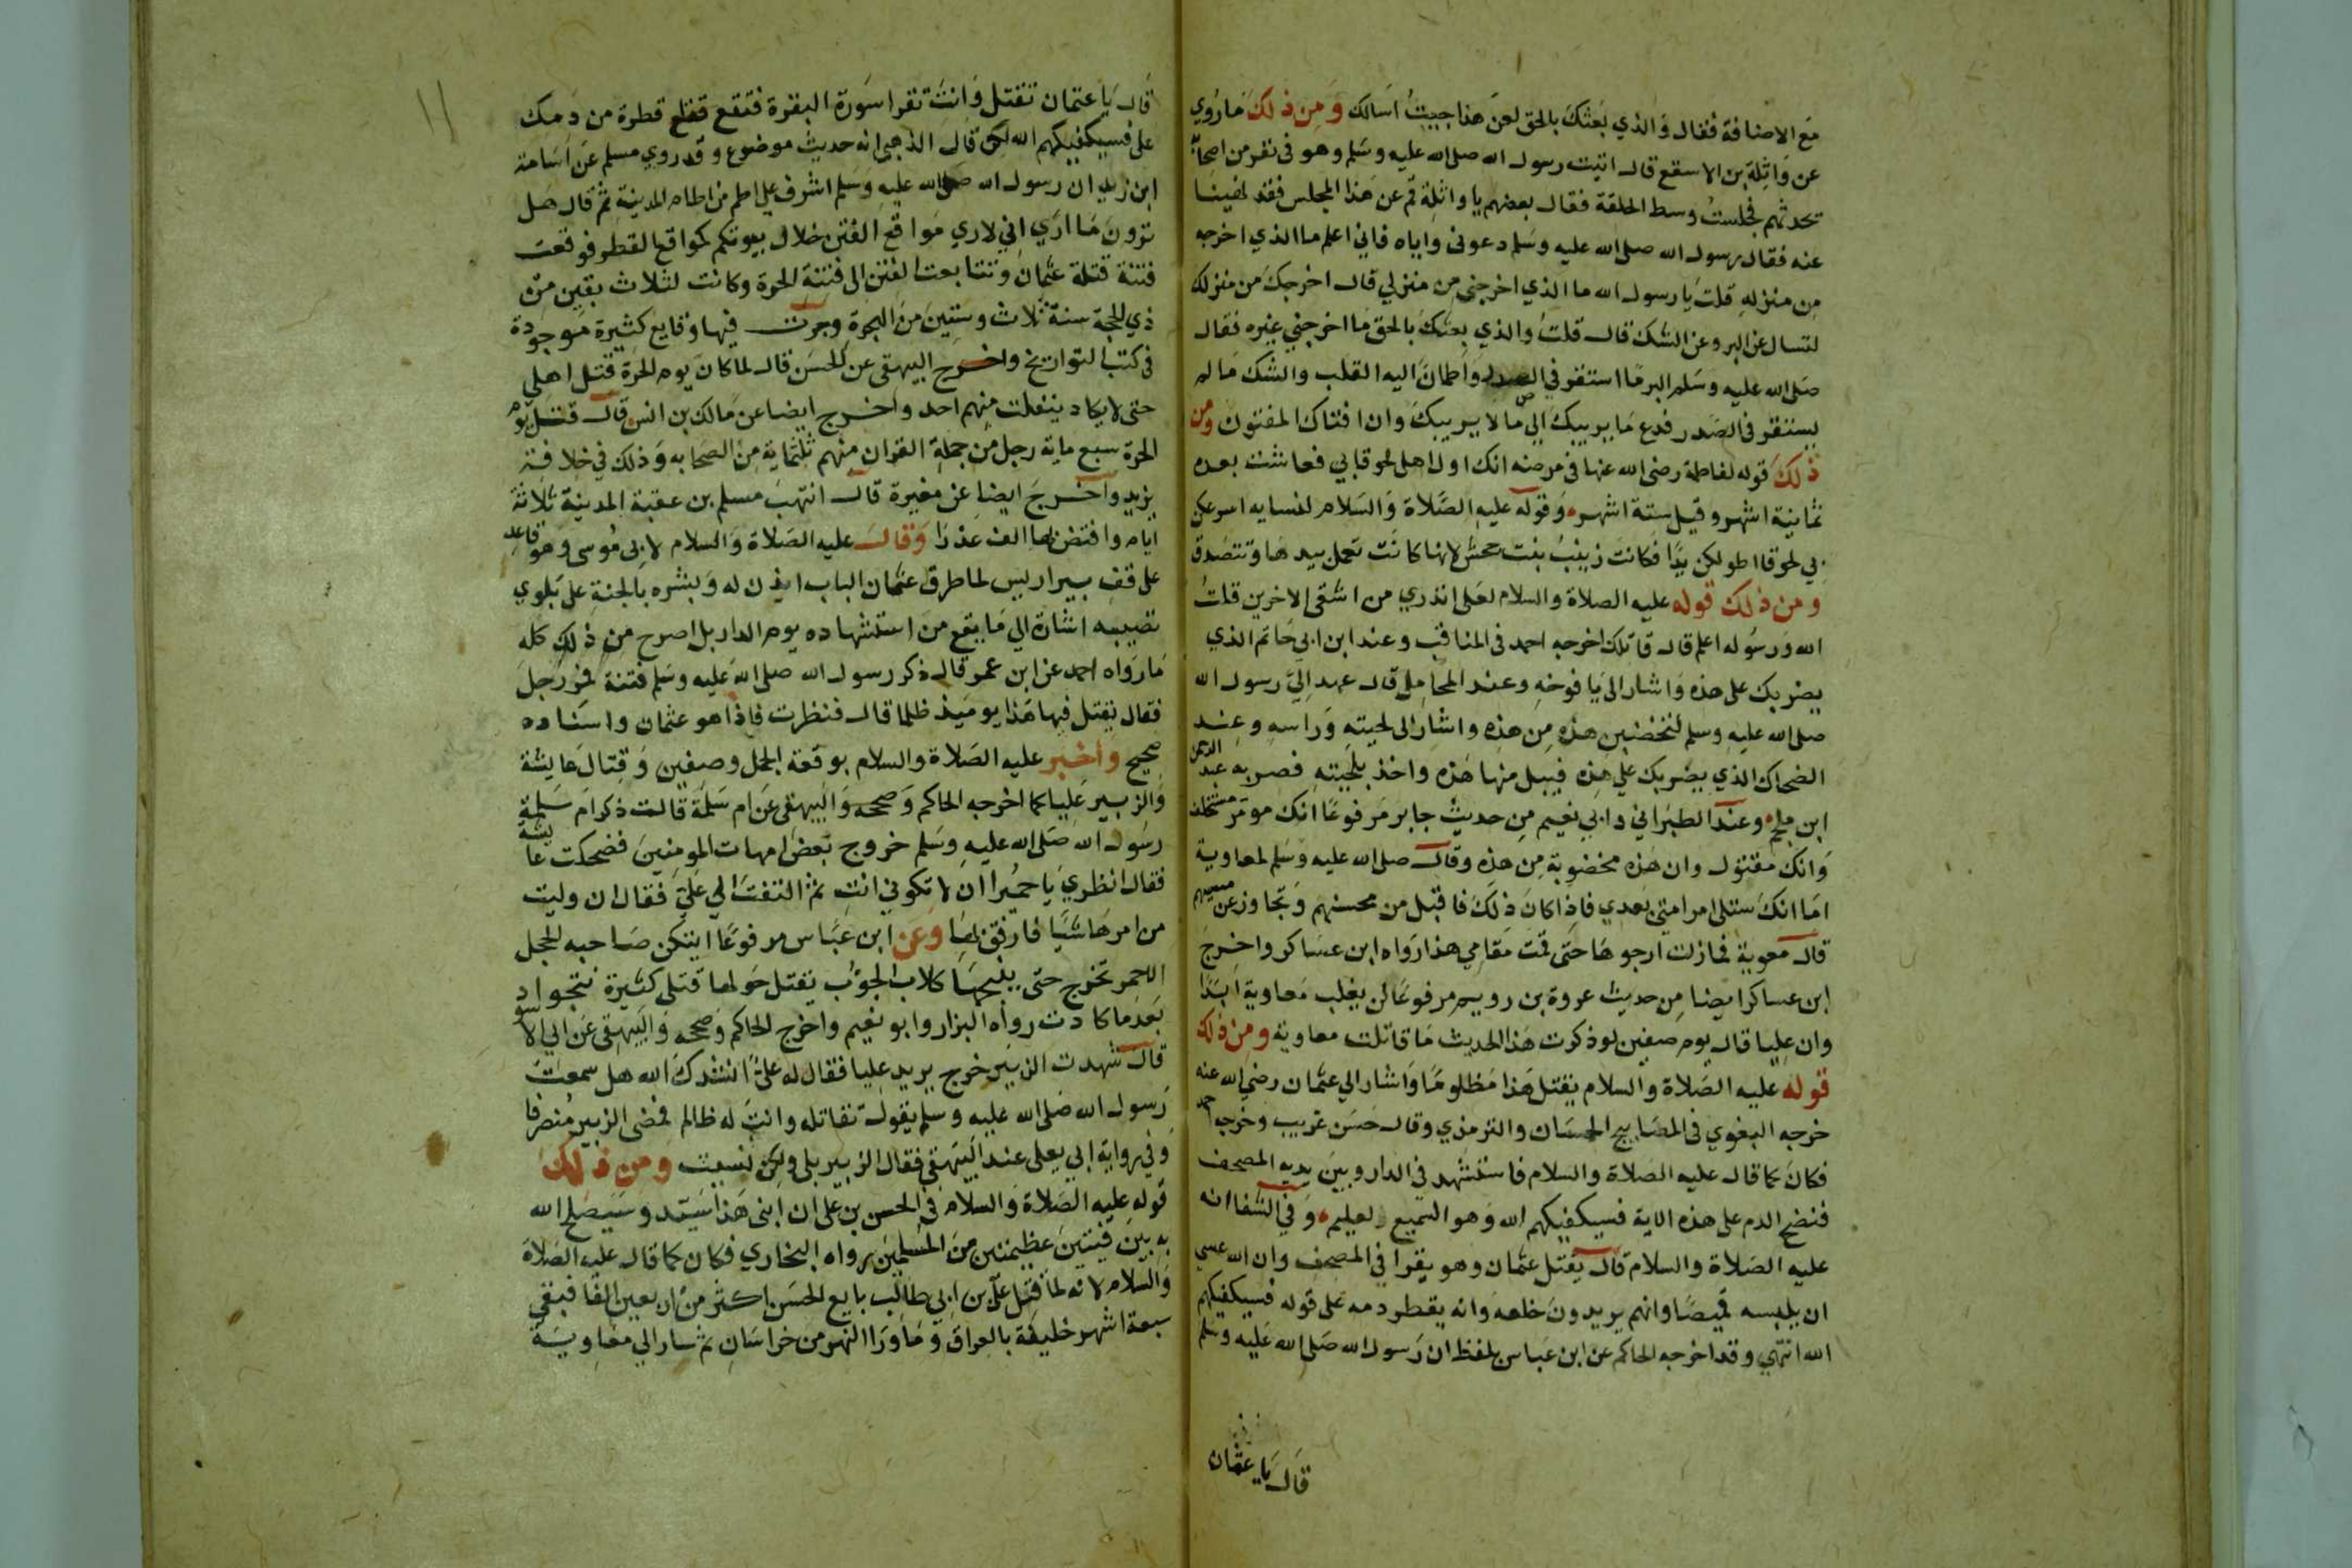 مع الاضافة فقال والذي بعثك بالحق لعن هذا جيت اسالك ومن ذلك ما روي
عن واثلة بن الاسقع قال اتيت رسول الله صلى الله عليه وسلم وهو في نفر من اصحابه
تحدثهم فجلست وسط الحلقة فقال بعضهم يا واثلة قم عن هذا المجلس فقد نهينا
عنه فقال رسول الله صلى الله عليه وسلم دعوني واياه فاني اعلم ما الذي اخرجه
من منزله قلت يا رسول الله ما الذي اخرجني من منزلي قال اخرجك من منزلك
لتسال عن البر وعن الشك قال قلت والذي بعثك بالحق ما اخرجني غيره فقال
صلى الله عليه وسلم البر ما استقر في الصدر واطمان اليه القلب والشك ما لم
يستقر في الصدر فدع ما يريبك الى ما لا يريبك وان افتاك المفتون ومن
ذلك قوله لفاطمة رضي الله عنها في مرضه انك اول اهلي لحوقا بي فعاشت بعده
ثمانية اشهر وقيل ستة اشهر وقوله عليه الصلاة والسلام لنسايه اسرعكن
بي لحوقا اطولكن يدا فكانت زينب بنت جحش لانها كانت تعمل بيدها وتتصدق
ومن ذلك قوله عليه الصلاة والسلام لعلي اتدري من اشقى الاخرين قلت
الله ورسوله اعلم قال قاتلك اخرجه احمد في المناقب وعند ابن ابي حاتم الذي
يضربك على هذه واشار الى يافوخه وعند المحاملي قال عهد الي رسول الله
صلى الله عليه وسلم لتخضبن هذه من هذه واشار الى لحيته وراسه وعند
الضحاك الذي يضربك على هذه فيبل منها هذه واخذ بلحيته فضربه عبد الرحمن
ابن ملجم وعند الطبراني وابي نعيم من حديث جابر مرفوعا انك مومر مستخلف
وانك مقتول وان هذه مخضوبة من هذه وقال صلى الله عليه وسلم لمعاوية
اما انك ستلي امر امتي بعدي فاذا كان ذلك فاقبل من محسنهم وتجاوز عن مسيهم
قال معوية فما زلت ارجوها حتى قمت مقامي هذا رواه ابن عساكر واخرج
ابن عساكر ايضا من حديث عروة بن رويم مرفوعا لن يغلب معاوية ابدا
وان عليا قال يوم صفين لو ذكرت هذا الحديث ما قاتلت معاوية ومن ذلك
قوله عليه الصلاة والسلام يقتل هذا مظلوما واشار الى عثمان رضي الله عنه
خرجه البغوي في المصابيح الحسان والترمذي وقال حسن غريب وخرجه احمد
فكان كما قال عليه الصلاة والسلام فاستشهد في الدار وبين يديه المصحف
فنضح الدم على هذه الاية فسيكفيكهم الله وهو السميع العليم وفي الشفا انه
عليه الصلاة والسلام قال يقتل عثمان وهو يقرا في المصحف وان الله عسى
ان يلبسه قميصا وانهم يريدون خلعه وانه يقطر دمه على قوله فسيكفيكهم
الله انتهى وقد اخرجه الحاكم عن ابن عباس بلفظ ان رسول الله صلى الله عليه وسلم
قال يا عثمان
١١
قال يا عثمان تقتل وانت تقرا سورة البقرة فتقع قطرة من دمك
على فسيكفيكهم الله لكن قال الذهبي انه حديث موضوع وقد روي مسلم عن اسامة
ابن زيد ان رسول الله صلى الله عليه وسلم اشرف على اطم من اطام المدينة ثم قال هل
ترون ما ارى اني لاري مواقع الفتن خلال بيوتكم كمواقع القطر فوقعت
فتنة قتلة عثمان وتتابعت الفتن الى فتنة الحرة وكانت لثلاث بقين من
ذي الحجة سنة ثلاث وستين من الهجرة وجرت فيها وقايع كثيرة موجودة
في كتب التواريخ واخرج البيهقي عن الحسن قال لما كان يوم الحرة قتل اهلي
حتى لا يكاد ينفلت منهم احد واخرج ايضا عن مالك بن انس قال قتل يوم
الحرة سبع ماية رجل من جملة القران منهم ثلثماية من الصحابه وذلك في خلافة
يزيد واخرج ايضا عن مغيرة قال انتهب مسلم بن عقبة المدينة ثلاثة
ايام وافتض بها الف عذرا وقال عليه الصلاة والسلام لابي موسى وهو قاعد
على قف بير اريس لما طرق عثمان الباب ايذن له وبشره بالجنة على بلوي
تصيبه اشارة الى ما يقع من استشهاده يوم الدار بل اصرح من ذلك كله
ما رواه احمد عن ابن عمر قال ذكر رسول الله صلى الله عليه وسلم فتنة فمر رجل
فقال يقتل فيها هذا يوميذ ظلما قال فنظرت فاذا هو عثمان واسناده
صحيح واخبر عليه الصلاة والسلام بوقعة الجمل وصفين وقتال عايشة
والزبير عليا كما اخرجه الحاكم وصححه والبيهقي عن ام سلمة قالت ذكر ام سلمة
رسول الله صلى الله عليه وسلم خروج بعض امهات المومنين فضحكت عايشة
فقال انظري يا حميرا ان لا تكوني انت ثم التفت الى علي فقال ان وليت
من امرها شيا فارفق بها وعن ابن عباس مرفوعا ايتكن صاحبه الجمل
الاحمر تخرج حتى ينبحها كلاب الحوئب يقتل حولها قتلى كثيرة تنجوا
بعد ما كادت رواه البزار وابو نعيم واخرج الحاكم وصححه والبيهقي عن ابي الاسود
قال شهدت الزبير خرج يريد عليا فقال له علي انشدك الله هل سمعت
رسول الله صلى الله عليه وسلم يقول تقاتله وانت له ظالم فمضى الزبير منصرفا
وفي رواية ابي يعلى عند البيهقي فقال الزبير بلى ولكن نسيت ومن ذلك
قوله عليه الصلاة والسلام في الحسن بن على ان ابني هذا سيد وسيصلح الله
به بين فيتين عظيمتين من المسلمين رواه البخاري فكان كما قال عليه الصلاة
والسلام لانه لما قتل علي بن ابي طالب بايع الحسن اكثر من اربعين الفا فبقي
سبعة اشهر خليفة بالعراق وماورا النهر من خراسان ثم سار الى معاوية